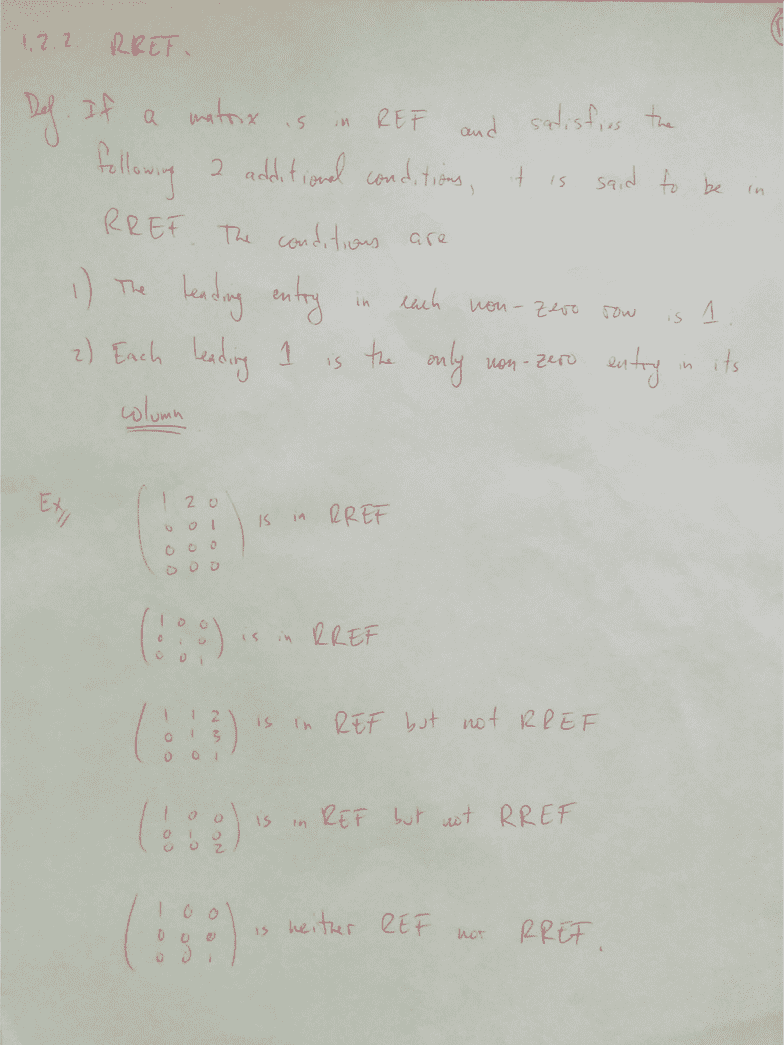 1.2.2 RREF.
Def. If a matrix is in REF and satisfies the
following 2 additional conditions, it is said to be in
RREF. The conditions are
1) The leading entry in each non-zero row is 1.
2) Each leading 1 is the only non-zero entry in its
column
Ex//
1 2 0
0 0 1 is in RREF
0 0 0
0 0 0
1 0 0
0 1 0 is in RREF
0 0 1
1 1 2 is in REF but not RREF
0 1 3
0 0 1
1 0 0 is in REF but not RREF
0 1 0
0 0 2
1 0 0
0 0 0 is neither REF nor RREF.
0 0 1